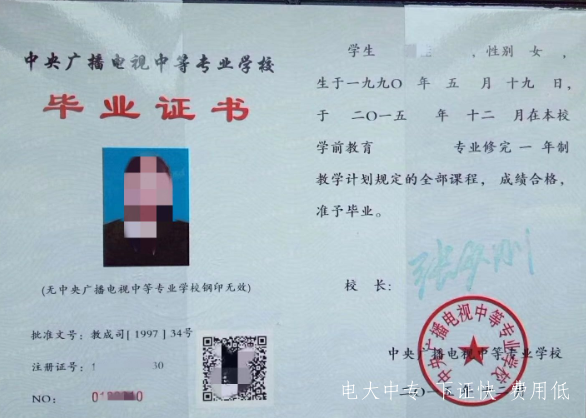 中央广播电视中等专业学校
毕业证书
(无中央广播电视中等专业学校钢印无效)
批准文号：教成司[1997]34号
注册证号：1 30
NO： 01 0
学生 、性别 女 ，
生于一九九〇 年 五 月 十九 日，
于 二〇一五 年 十二 月在本校
学前教育 专业修完 一 年制
教学计划规定的全部课程，成绩合格，
准予毕业。
校 长：
中央广播电视中等专业学校
中央广播电视中等专业学校
电大中专 下证快 费用低